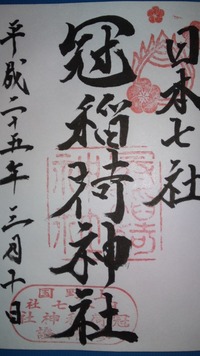 日本七社
冠稲荷神社
平成二十五年三月十日